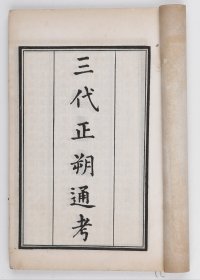 三代正朔通考